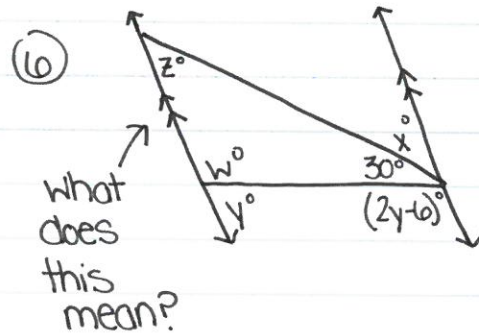 6
z°
x°
w°
30°
y°
(2y-6)°
what
does
this
mean?